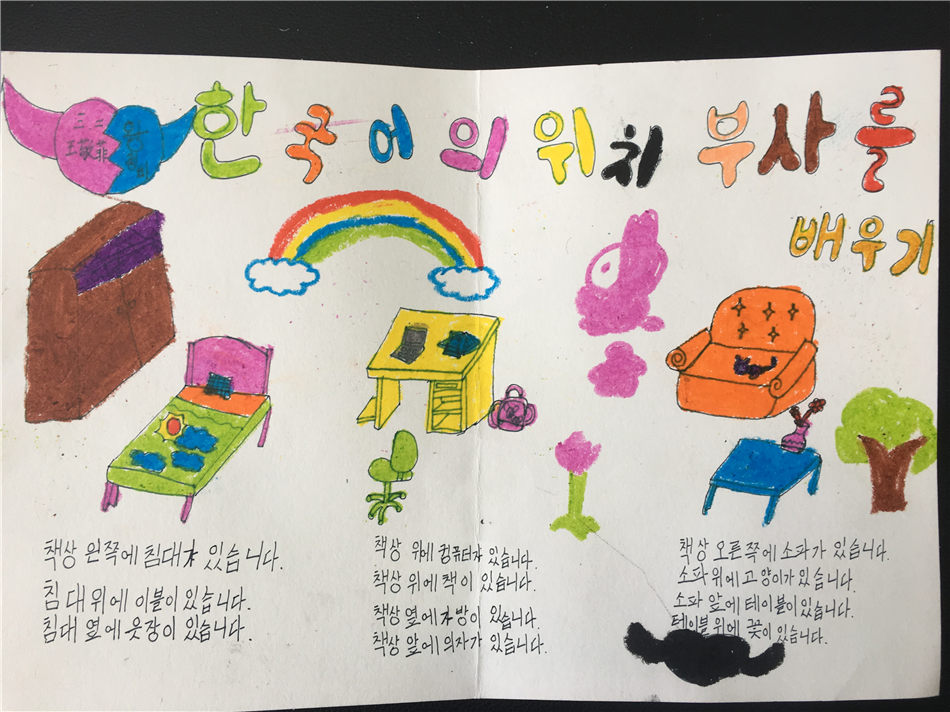 三二
王敬菲
한국어의 위치 부사를
배우기
책상 왼쪽에 침대가 있습니다.
침대 위에 이불이 있습니다.
침대 옆에 옷장이 있습니다.
책상 위에 컴퓨터가 있습니다.
책상 위에 책이 있습니다.
책상 옆에 가방이 있습니다.
책상 앞에 의자가 있습니다.
책상 오른쪽에 소파가 있습니다.
소파 위에 고양이가 있습니다.
소파 앞에 테이블이 있습니다.
테이블 위에 꽃이 있습니다.